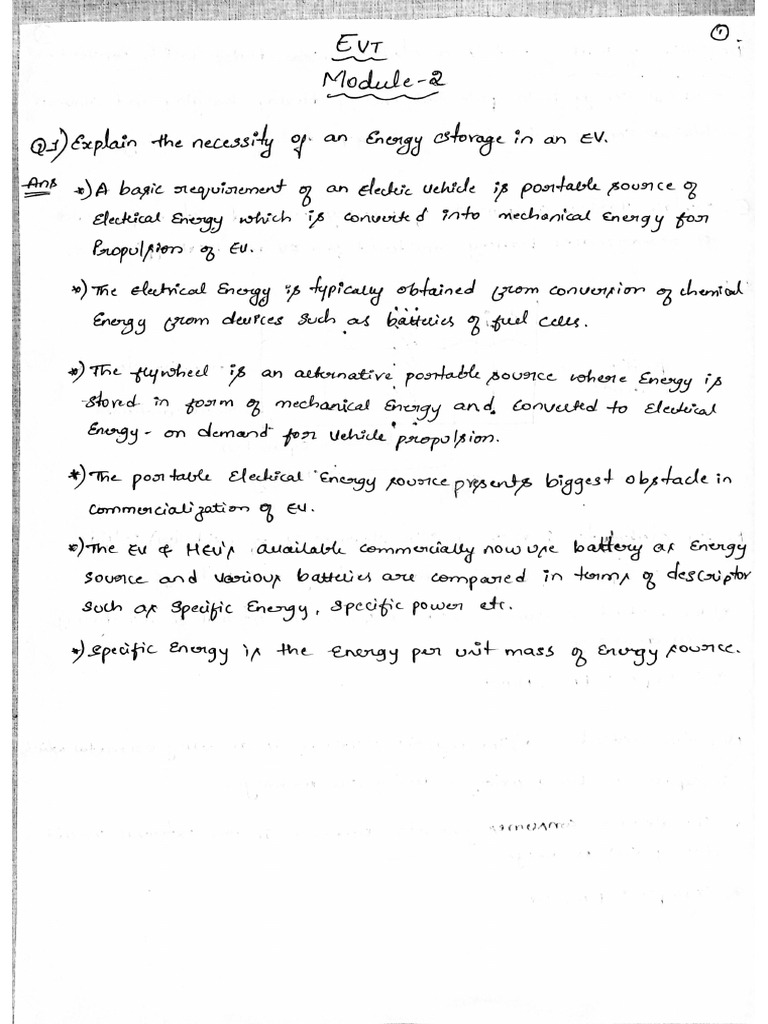 1
EVT
Module-2
Q.1) Explain the necessity of an Energy storage in an EV.
Ans *) A basic requirement of an Electric vehicle is portable source of
Electrical Energy which is converted into mechanical Energy for
Propulsion of EV.
*) The electrical Energy is typically obtained from conversion of chemical
Energy from devices such as batteries of fuel cells.
*) The flywheel is an alternative portable source where Energy is
stored in form of mechanical Energy and converted to Electrical
Energy - on demand for vehicle propulsion.
*) The portable Electrical Energy source presents biggest obstacle in
commercialization of EV.
*) The EV & HEV's available commercially now use battery as Energy
source and various batteries are compared in terms of descriptor
such as specific Energy, specific power etc.
*) specific Energy is the Energy per unit mass of Energy source.